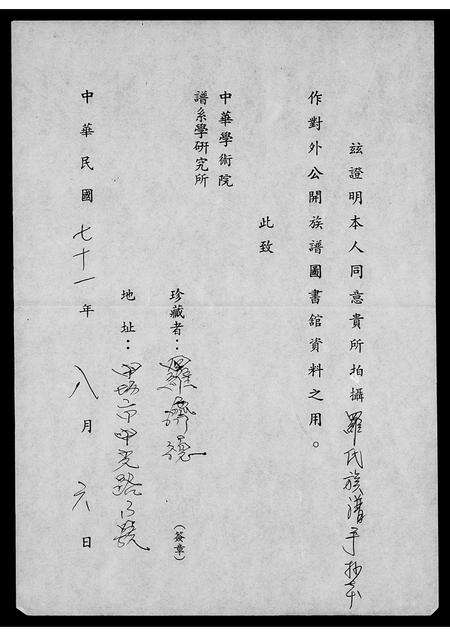 茲證明本人同意貴所拍攝羅氏族譜手抄本
作對外公開族譜圖書舘資料之用。
此致
中華學術院
譜系學研究所
珍藏者：羅濟
(簽章)
地址：市中光路號
中華民國七十一年八月六日